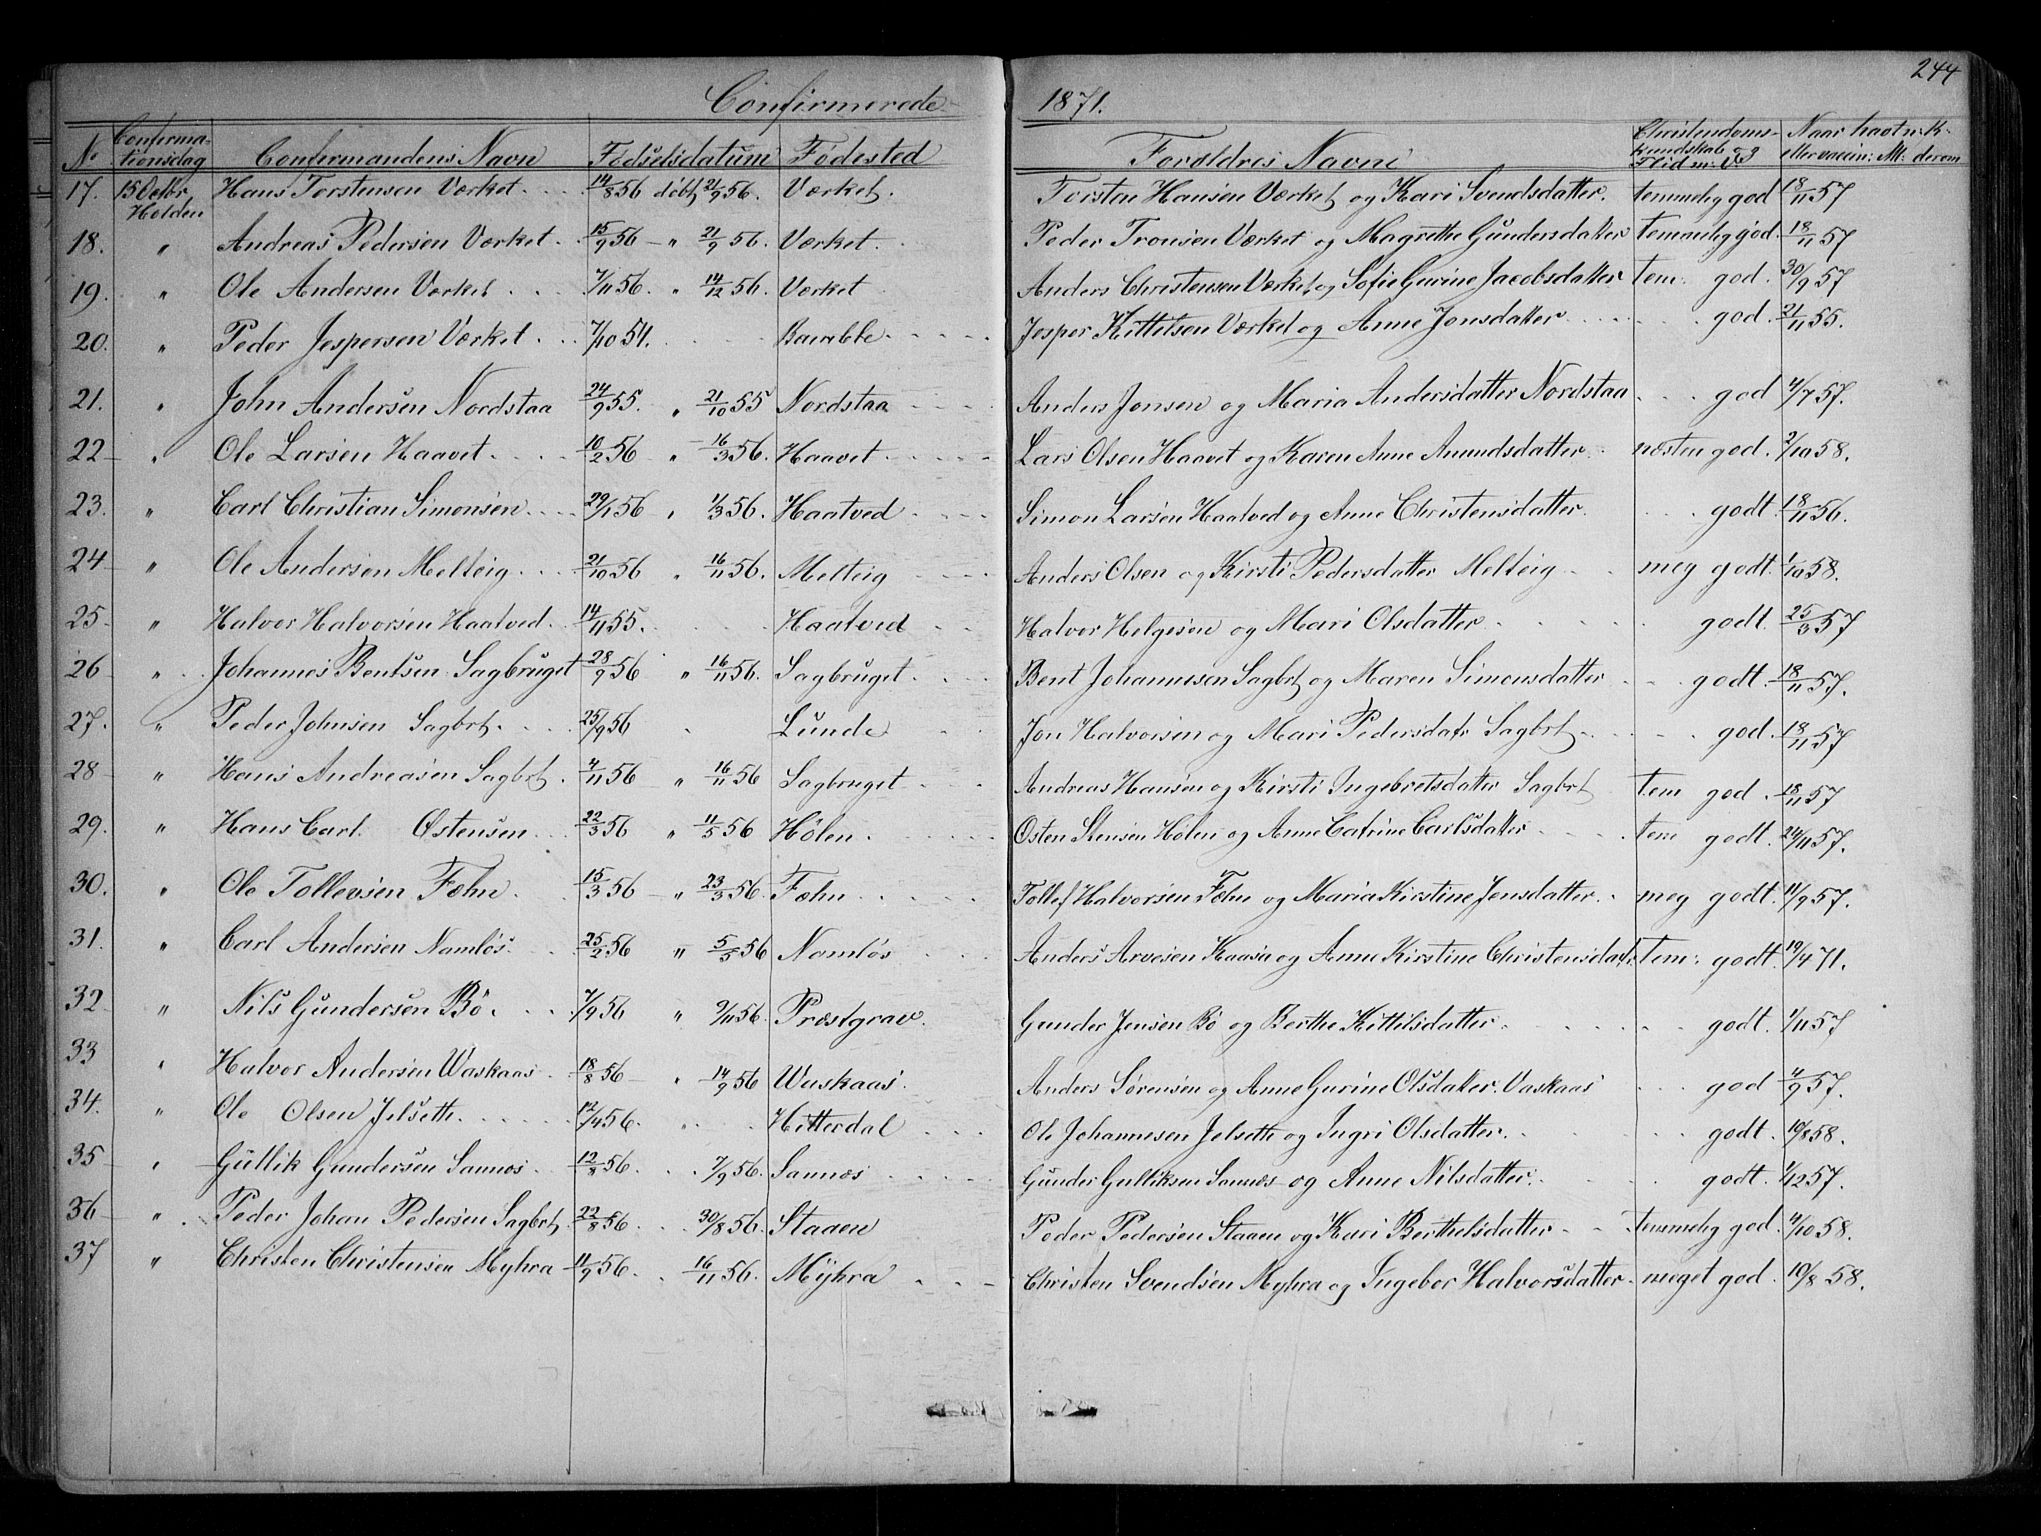 244
Confirmerede 1871.
No Confirmationsdag Confirmandens Navn Fødselsdatum Fødested Forældres Navne Christendomskundskab og Flid m: V. Naar havt n: K- eller vaccin: At: derom
17. 15 Octbr Holden Hans Torstensen Værket 14/8 56 døbt 21/9 56. Værket. Torsten Hansen Værket og Kari Svendsdatter. temmelig god 18/11 57
18. " Andreas Pedersen Værket 15/9 56 " 21/9 56. Værket. Peder Tronsen Værket og Magrethe Gundersdatter temmelig god. 18/11 57
19. " Ole Andersen Værket 7/11 56. " 14/12 56. Værket Anders Christensen Værket og Sofie Gurine Jacobsdatter tem: god. 30/9 57
20. " Peder Jespersen Værket 7/10 54. Bamble Jesper Kittelsen Værket og Anne Jonsdatter god. 21/11 55.
21. " John Andersen Nordstaa 24/9 55. " 21/10 55 Nordstaa Anders Jonsen og Maria Andersdatter Nordstaa god 4/7 57.
22 " Ole Larsen Haavet 10/2 56 " 16/3 56. Haavet Lars Olsen Haavet og Karen Anne Amundsdatter næsten god. 2/10 58.
23. " Carl Christian Simonsen 29/1 56 " 1/3 56. Haatved Simon Larsen Haatved og Anne Christensdatter godt. 18/11 56.
24 " Ole Andersen Melteig 21/10 56 " 16/11 56. Melteig Anders Olsen og Kirsti Pedersdatter Melteig meg godt. 1/10 58.
25. " Halvor Halvorsen Haatved. 14/11 55. Haatved Halvor Helgesen og Mari Olsdatter godt. 25/3 57
26 " Johannes Bentsen Sagbruget 28/9 56 " 16/11 56. Sagbruget Bent Johannesen Sagbrt og Maren Simonsdatter godt. 18/11 57.
27. " Peder Johnsen Sagbrt. 25/9 56 Lunde Jon Halvorsen og Mari Pedersdatr Sagbrt god. 18/11 57
28 " Hans Andreasen Sagbrt 4/11 56 " 16/11 56 Sagbruget Andreas Hansen og Kirsti Ingebretsdatter Sagbrt tem god. 18/11 57
29. " Hans Carl Østensen 22/3 56 " 11/5 56 Hølen. Østen Stensen Hølen og Anne Catrine Carlsdatter tem godt. 24/11 57.
30. " Ole Tollevsen Fæhn. 15/3 56 " 23/3 56. Fæhn Tollef Halvorsen Fæhn og Maria Kirstine Jensdatter meg godt. 11/9 57.
31. " Carl Andersen Namløs. 25/2 56 " 5/5 56 Namløs Anders Arvesen Kaasa og Anne Kirstine Christensdatr tem: godt. 19/4 71.
32 " Nils Gundersen Bö. 7/9 56 " 9/11 56. Præstgrav. Gunder Jensen Bö og Berthe Kittilsdatter godt. 1/11 57
33 " Halvor Andersen Waskaas 18/8 56 " 14/9 56 Waskaas. Anders Sørensen og Anne Gurine Olsdatter Vaskaas god 4/9 57.
34. " Ole Olsen Jelseth. 12/4 56. " Hitterdal Ole Johannesen Jelseth og Ingri Olsdatter. godt. 10/8 58.
35 " Gullik Gundersen Sannæs. 12/8 56. 7/9 56. Sannæs Gunder Gulliksen Sannæs og Anne Nilsdatter. godt. 1/12 57.
36 " Peder Johan Pedersen Sagbrt. 22/8 56. 30/8 56. Staaen Peder Pedersen Staaen og Kari Berthelsdatter temmelig god. 4/10 58.
37 " Christen Christensen Myhra 11/9 56. 16/11 56. Myhra Christen Svendsen Myhra og Ingebor Halvorsdatter meget god. 10/8 58.